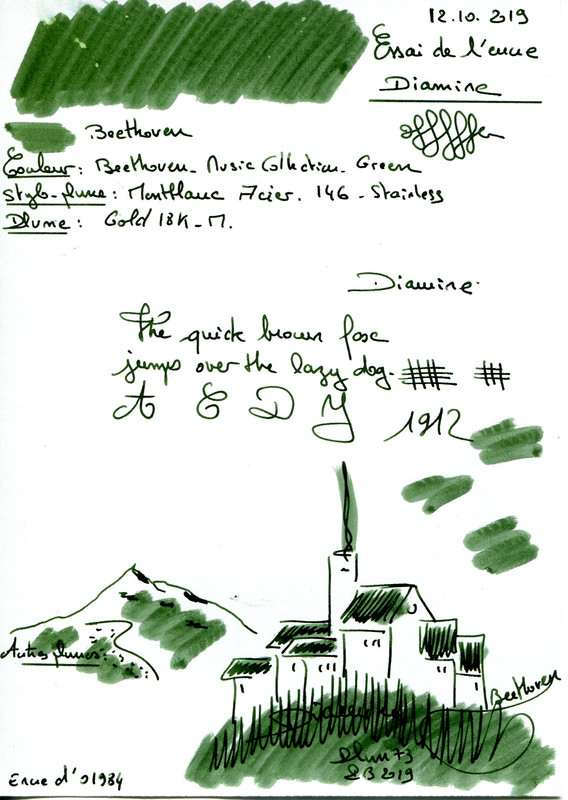 12.10.2019
Essai de l'encre
Diamine
Beethoven
Couleur: Beethoven_ Music Collection_ Green
Stylo-plume: Montblanc Acier. 146 - Stainless
Plume: Gold 18K_M.
Diamine
The quick brown fox
jumps over the lazy dog.
A E D Y 1912
Autres plumes:
Beethoven
Diamine
Plum 73
2019
Encre d'